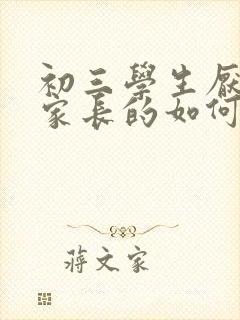 初三學生厭
家長的如何
蔣文家